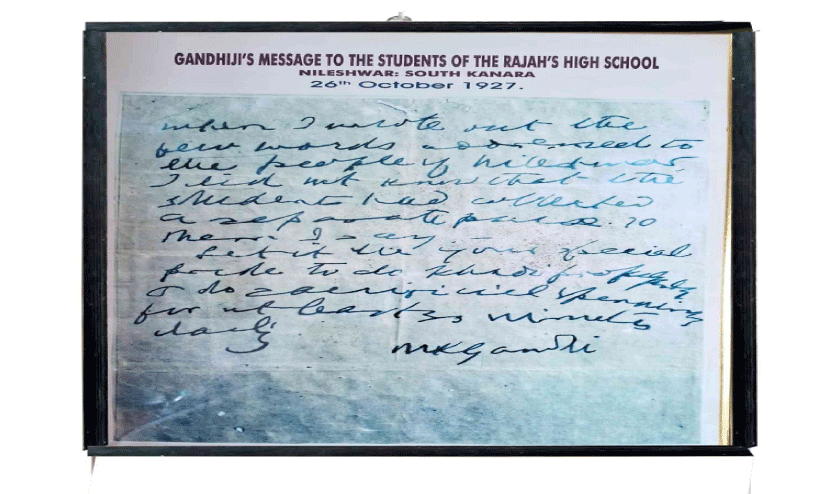 GANDHIJI'S MESSAGE TO THE STUDENTS OF THE RAJAH'S HIGH SCHOOL
NILESHWAR: SOUTH KANARA
26th October 1927.
when I wrote out the
few words addressed to
the people of Nileshwar,
I did not know that the
students had collected
a separate purse. To
them I say
Let it be your special
pride to do khadi
& do sacrificial spinning
for at least 30 minutes
daily
MKGandhi